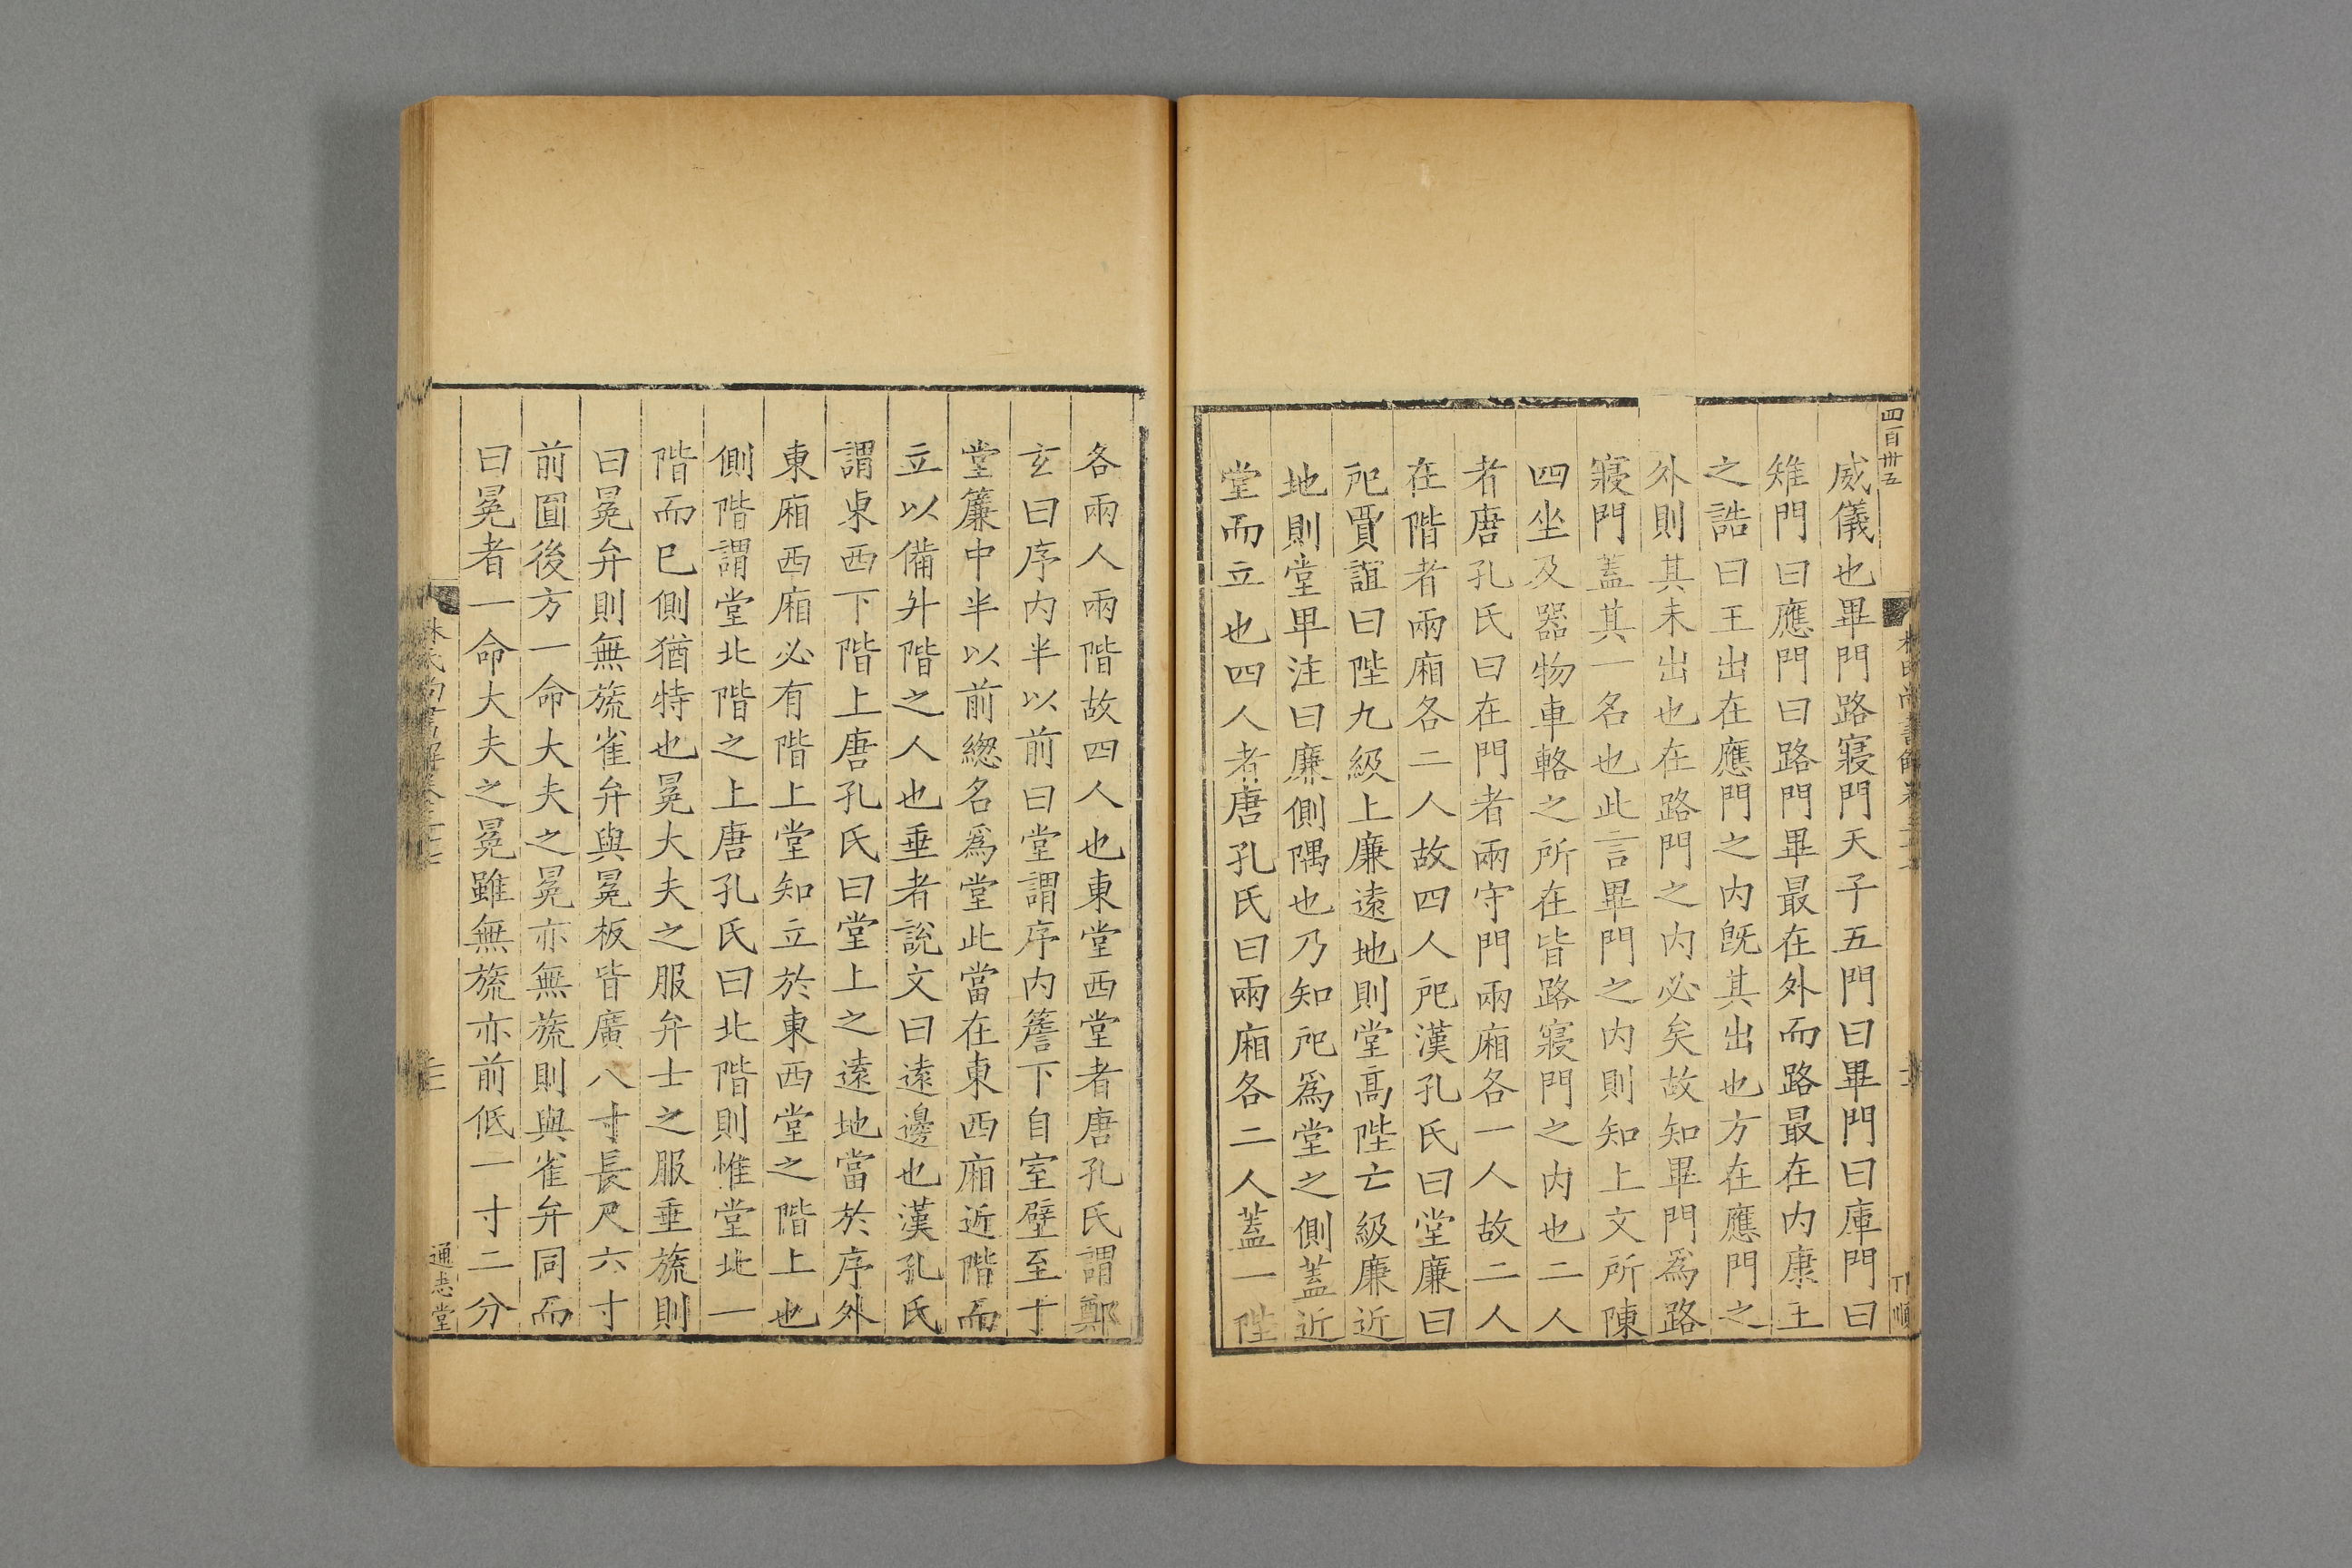 四百卅五
威儀也畢門路寢門天子五門曰畢門曰庫門曰
雉門曰應門曰路門畢最在外而路最在内康王
之誥曰王出在應門之内旣其出也方在應門之
外則其未出也在路門之内必矣故知畢門爲路
寢門蓋其一名也此言畢門之内則知上文所陳
四坐及器物車輅之所在皆路寢門之内也二人
者唐孔氏曰在門者兩守門兩廂各一人故二人
在階者兩廂各二人故四人戺漢孔氏曰堂廉曰
戺賈誼曰陛九級上廉遠地則堂高陛亡級廉近
地則堂卑注曰廉側隅也乃知戺爲堂之側蓋近
堂而立也四人者唐孔氏曰兩廂各二人蓋一陛
各兩人兩階故四人也東堂西堂者唐孔氏謂鄭
玄曰序内半以前曰堂謂序内簷下自室壁至于
堂簾中半以前緫名爲堂此當在東西廂近階而
立以備升階之人也垂者說文曰遠邊也漢孔氏
謂東西下階上唐孔氏曰堂上之遠地當於序外
東廂西廂必有階上堂知立於東西堂之階上也
側階謂堂北階之上唐孔氏曰北階則惟堂北一
階而已側猶特也冕大夫之服弁士之服垂旒則
曰冕弁則無旒雀弁與冕板皆廣八寸長尺六寸
前圓後方一命大夫之冕亦無旒則與雀弁同而
曰冕者一命大夫之冕雖無旒亦前低一寸二分
通志堂